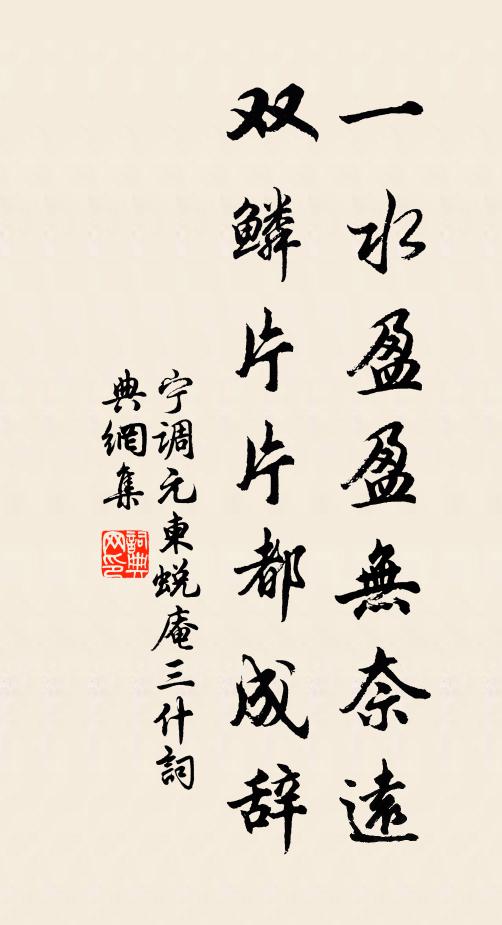 一水盈盈無奈遠
双鳞片片都成辞
宁调元東蜕庵三什詞
典網集
詞典网印